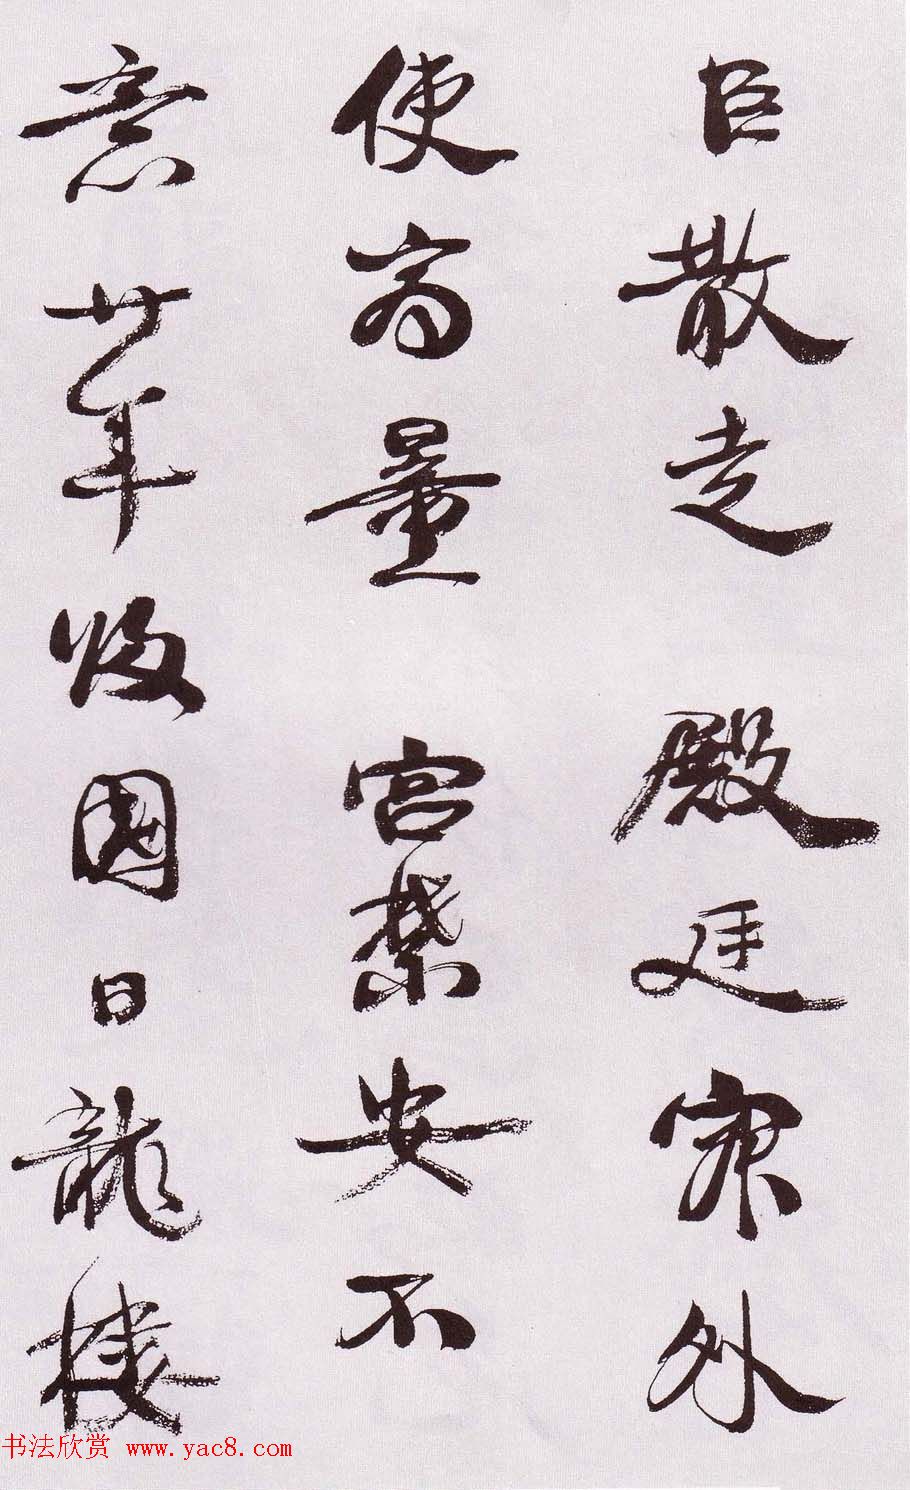 臣散走 殿廷寂外
使商量 宮禁安不
意廿年收國日龍樓
书法欣赏 www.yac8.com